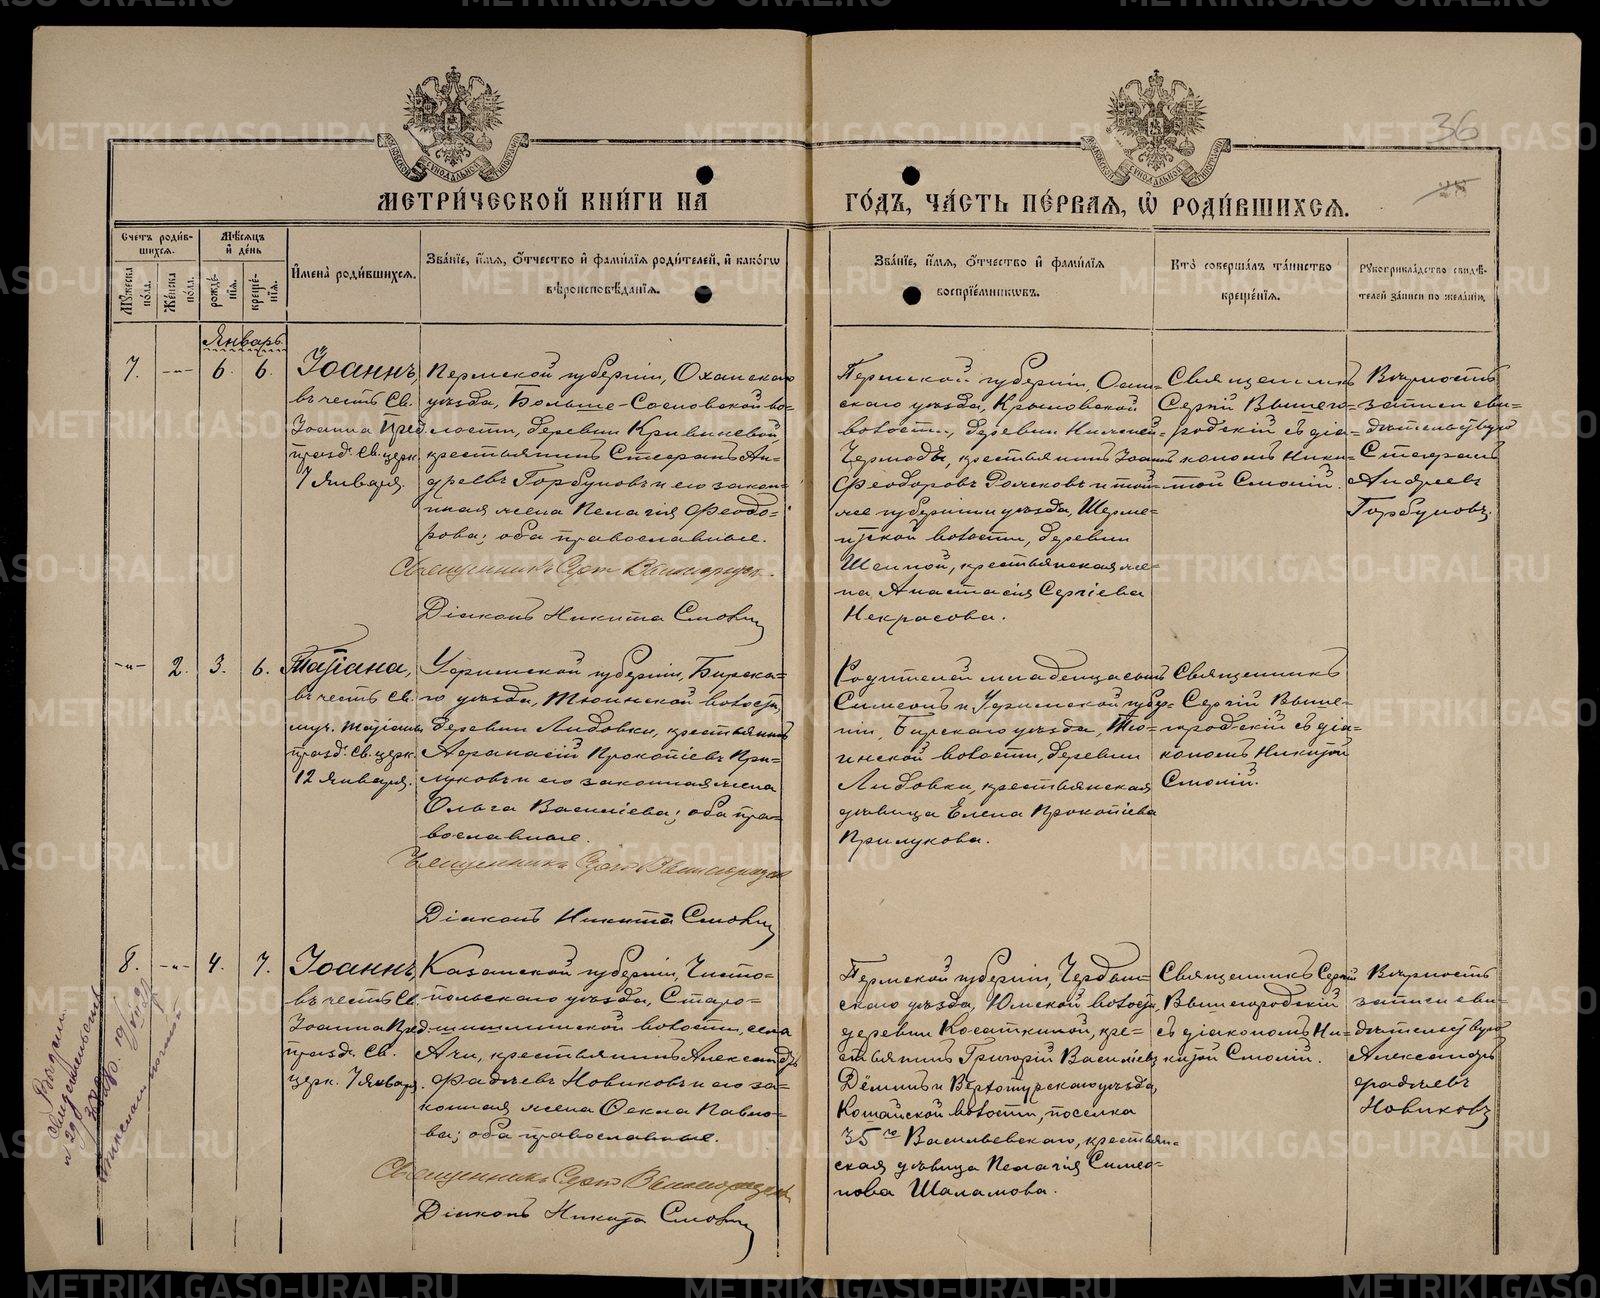 36
МОСКОВСКОЙ СѴНОДАЛЬНОЙ ТИПОГРАФІИ
МОСКОВСКОЙ СѴНОДАЛЬНОЙ ТИПОГРАФІИ
МЕТРИ́ЧЕСКОЙ КНИ́ГИ НА
ГО́ДЪ, ЧА́СТЬ ПЕ́РВАЯ, Ѡ҆ РОДИ́ВШИХСЯ.
Счетъ роди́в-
шихся.
Мѣ́сяцъ
и҆ де́нь
Мꙋжеска
по́ла.
Же́нска
по́ла.
рожде́-
нїя.
креще́-
нїя.
И҆мена̀ роди́вшихся.
Зва́нїе, и҆́мя, ѻ҆́тчество и҆ фами́лїя роди́телей, и҆ како́гѡ
вѣроисповѣ́данїя.
Зва́нїе, и҆́мя, ѻ҆́тчество и҆ фами́лїя
воспрїе́мникѡвъ.
Кто̀ соверша́лъ та́инство
креще́нїя.
Рꙋкоприкла́дство свидѣ́-
телей за́писи по жела́нїю.
Январь.
7. -„- 6. 6.
Іоаннъ,
въ честь Св.
Іоанна Пред.
празд. Св. церк.
7 Января.
Пермской губерніи, Оханскаго
уѣзда, Больше-Сосновской во-
лости, деревни Кривиневой,
крестьянинъ Стефанъ Ан-
дреевъ Горбуновъ и его закон-
ная жена Пелагія Феодо-
рова; оба православные.
Священникъ Сергій Вышегородскій.
Діаконъ Никита Смолій
Пермской губерніи, Осин-
скаго уѣзда, Крыловской
волости, деревни Нижней-
Чермоды, крестьянинъ Іоаннъ
Феодоровъ и той-
же губерніи и уѣзда, Шерме-
итской волости, деревни
крестьянская же-
на Анастасія Сергіева
Некрасова.
Священникъ
Сергій Вышего-
родскій съ діа-
кономъ Ники-
той Смолій.
Вѣрность
записи сви-
дѣтельствую
Стефанъ
Андреевъ
Горбуновъ.
-„- 2. 3. 6.
Татіана,
въ честь Св.
муч. Татіаны
празд. Св. церк.
12 Января.
Уфимской губерніи, Бирска-
го уѣзда, Тюинской волости,
деревни Лидовки, крестьянинъ
Афанасій Прокопіевъ При-
луковъ и его законная жена
Ольга Василіева; оба пра-
вославные.
Священникъ Сергій Вышегородскій
Діаконъ Никита Смолій
Родителей младенца сынъ
Симеонъ и Уфимской губер-
ніи, Бирскаго уѣзда, Тю-
инской волости, деревни
Лидовки, крестьянская
дѣвица Елена Прокопіева
Прилукова.
Священникъ
Сергій Выше-
городскій съ діа-
кономъ Никитой
Смолій.
8. -„- 4. 7.
Іоаннъ,
въ честь Св.
Іоанна Пред.
празд. Св.
церк. 7 Января.
Казанской губерніи, Чисто-
польскаго уѣзда, Старо-
волости, села
Ачи, крестьянинъ Александръ
Фадѣевъ Новиковъ и его за-
конная жена Ѳекла Павло-
ва; оба православные.
Священникъ Сергій Вышегородскій
Діаконъ Никита Смолій
Пермской губерніи, Чердын-
скаго уѣзда, Юмской волости,
деревни Косаткиной, кре-
стьянинъ Григорій Василіевъ
Дёминъ и Верхотурскаго уѣзда,
Кошайской волости, поселка
35го Васильевскаго, крестьян-
ская дѣвица Пелагія Симео-
нова Шаламова.
Священникъ Сергій
Вышегородскій
съ діакономъ Ни-
китой Смолій.
Вѣрность
записи сви-
дѣтельствую
Александръ
Фадѣевъ
Новиковъ
METRIKI.GASO-URAL.RU